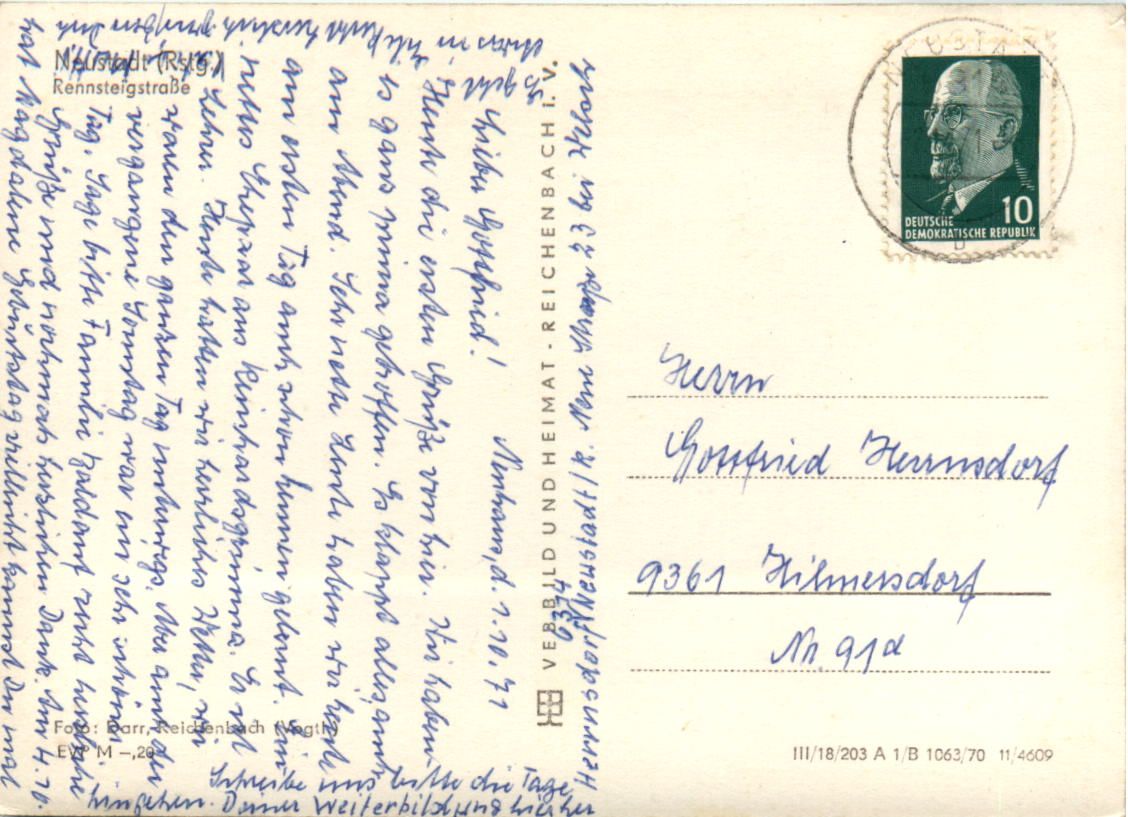 Neustadt (Rstg.)
Rennsteigstraße
Neuhaus, d. 1.10.71
Lieber Gottfried!
Heute die ersten Grüße von hier. Wir haben
es ganz prima getroffen. Es klappt alles, auch
am Abend. Sehr nette Leute haben wir heute
am ersten Tag auch schon kennen gelernt. Ein
nettes Ehepaar aus Reinhardsgrimma. Er ist
Lehrer. Heute hatten wir herrliches Wetter, wir
waren den ganzen Tag unterwegs. Aber auch der
vergangene Sonntag war ein sehr schöner
Tag. Sage bitte Familie recht herzliche
Grüße und nochmals herzlichen Dank. Am 4.10.
hat Magdalene Geburtstag vielleicht kannst Du mal
hingehen. Deiner Weiterbildung hierher
Schreibe uns bitte die Tage
Es geht
recht herzlich grüßen Dich
VEB BILD UND HEIMAT - REICHENBACH I. V.
6374
Herrnsdorf Neustadt/R. Neue Straße 23 bei
Foto: Darr, Reichenbach (Vogtl)
EVP M -,20
NEUSTADT
DEUTSCHE
DEMOKRATISCHE REPUBLIK
10
Herrn
Gottfried Herrnsdorf
9361 Hilmersdorf
Nr. 91d
III/18/203 A 1/B 1063/70 11/4609